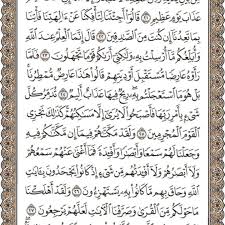 عَذَابَ يَوْمٍ عَظِيمٍ ﴿٢١﴾ قَالُوٓا۟ أَجِئْتَنَا لِتَأْفِكَنَا عَنْ ءَالِهَتِنَا فَأْتِنَا
بِمَا تَعِدُنَآ إِن كُنتَ مِنَ ٱلصَّـٰدِقِينَ ﴿٢٢﴾ قَالَ إِنَّمَا ٱلْعِلْمُ عِندَ ٱللَّهِ
وَأُبَلِّغُكُم مَّآ أُرْسِلْتُ بِهِۦ وَلَـٰكِنِّىٓ أَرَىٰكُمْ قَوْمًا تَجْهَلُونَ ﴿٢٣﴾ فَلَمَّا
رَأَوْهُ عَارِضًا مُّسْتَقْبِلَ أَوْدِيَتِهِمْ قَالُوا۟ هَـٰذَا عَارِضٌ مُّمْطِرُنَا
بَلْ هُوَ مَا ٱسْتَعْجَلْتُم بِهِۦ رِيحٌ فِيهَا عَذَابٌ أَلِيمٌ ﴿٢٤﴾ تُدَمِّرُ كُلَّ
شَىْءٍۭ بِأَمْرِ رَبِّهَا فَأَصْبَحُوا۟ لَا يُرَىٰٓ إِلَّا مَسَـٰكِنُهُمْ كَذَٰلِكَ نَجْزِى
ٱلْقَوْمَ ٱلْمُجْرِمِينَ ﴿٢٥﴾ وَلَقَدْ مَكَّنَّـٰهُمْ فِيمَآ إِن مَّكَّنَّـٰكُمْ فِيهِ
وَجَعَلْنَا لَهُمْ سَمْعًا وَأَبْصَـٰرًا وَأَفْـِٔدَةً فَمَآ أَغْنَىٰ عَنْهُمْ سَمْعُهُمْ
وَلَآ أَبْصَـٰرُهُمْ وَلَآ أَفْـِٔدَتُهُم مِّن شَىْءٍ إِذْ كَانُوا۟ يَجْحَدُونَ بِـَٔايَـٰتِ
ٱللَّهِ وَحَاقَ بِهِم مَّا كَانُوا۟ بِهِۦ يَسْتَهْزِءُونَ ﴿٢٦﴾ وَلَقَدْ أَهْلَكْنَا
مَا حَوْلَكُم مِّنَ ٱلْقُرَىٰ وَصَرَّفْنَا ٱلْـَٔايَـٰتِ لَعَلَّهُمْ يَرْجِعُونَ ﴿٢٧﴾